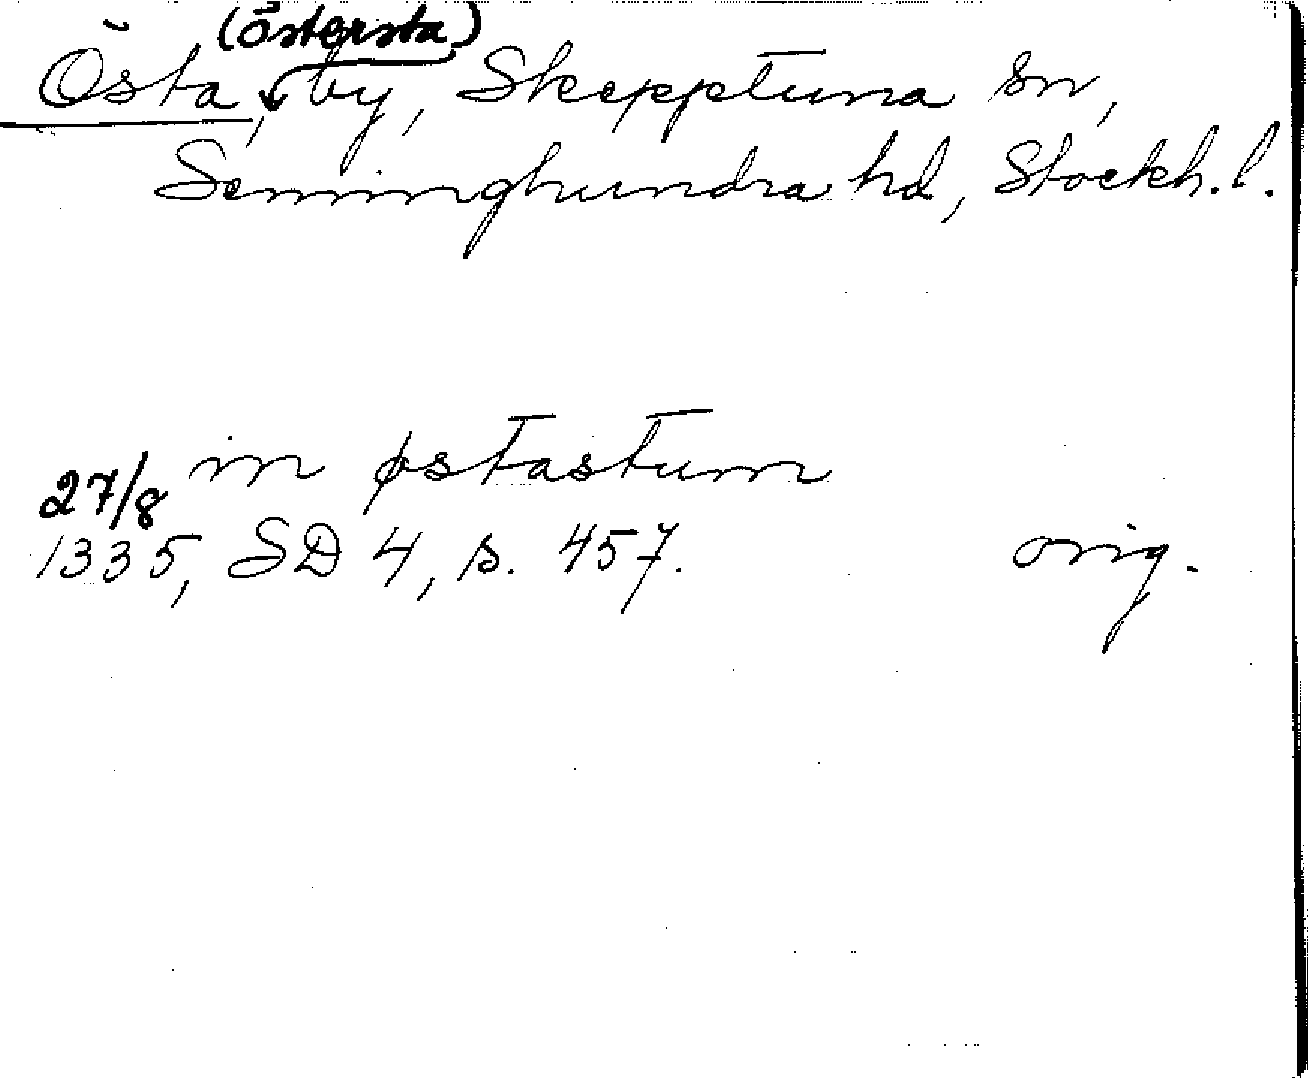 (Östersta)
Östa, by, Skepptuna sn,
Seminghundra hd, Stockh. l.
in østastum
27/8
1335, SD 4, s. 457. orig.